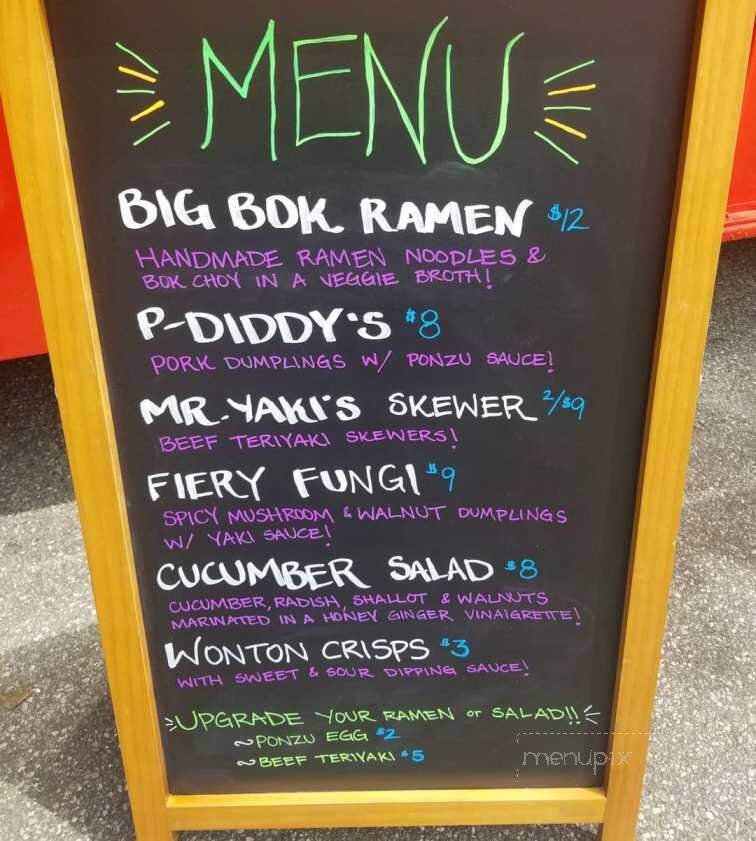 MENU
BIG BOK RAMEN $12
HANDMADE RAMEN NOODLES &
BOK CHOY IN A VEGGIE BROTH!
P-DIDDY'S $8
PORK DUMPLINGS W/ PONZU SAUCE!
MR. YAKI'S SKEWER 2/$9
BEEF TERIYAKI SKEWERS!
FIERY FUNGI $9
SPICY MUSHROOM & WALNUT DUMPLINGS
W/ YAKI SAUCE!
CUCUMBER SALAD $8
CUCUMBER, RADISH, SHALLOT & WALNUTS
MARINATED IN A HONEY GINGER VINAIGRETTE!
WONTON CRISPS $3
WITH SWEET & SOUR DIPPING SAUCE!
UPGRADE YOUR RAMEN or SALAD!!
~PONZU EGG $2
~BEEF TERIYAKI $5
menupix